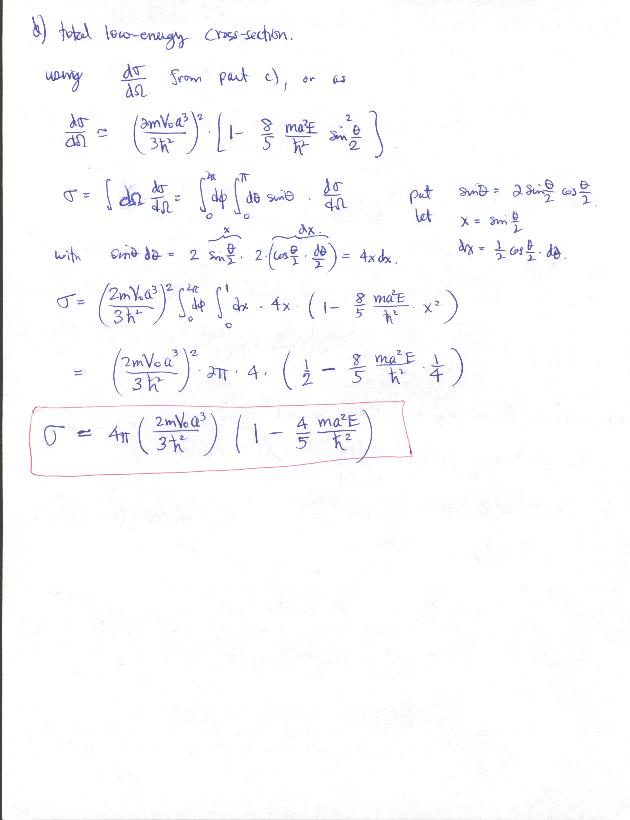 d) total low-energy cross-section.
using dσ/dΩ from part c), or as
dσ/dΩ ≃ (2mV₀a³/3ħ²)² · [1 - 8/5 ma²E/ħ² sin² θ/2]
σ = ∫ dΩ dσ/dΩ = ∫₀^2π dφ ∫₀^π dθ sinθ · dσ/dΩ
put sinθ = 2 sin θ/2 cos θ/2.
let x = sin θ/2
dx = 1/2 cos θ/2 · dθ.
x dx
with sinθ dθ = 2 sin θ/2 · 2 · (cos θ/2 · dθ/2) = 4x dx.
σ = (2mV₀a³/3ħ²)² ∫₀^2π dφ ∫₀^1 dx · 4x · (1 - 8/5 ma²E/ħ² · x²)
= (2mV₀a³/3ħ²)² · 2π · 4 · (1/2 - 8/5 ma²E/ħ² · 1/4)
σ = 4π (2mV₀a³/3ħ²) (1 - 4/5 ma²E/ħ²)